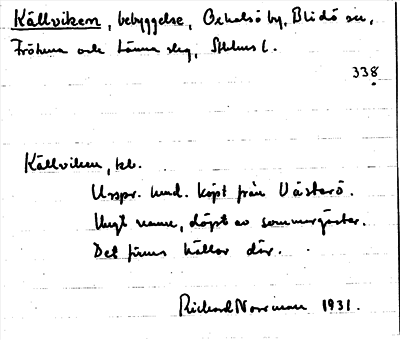 Källviken, bebyggelse, Oxhalsö by, Blidö sn,
Fröhuna och Länna slg, Sthlms l.
338
Källviken, bb.
Urspr. hmd. köpt från Västerö.
Ungt namn, döpt av sommargäster.
Det finns källor där.
Richard Norrman 1931.